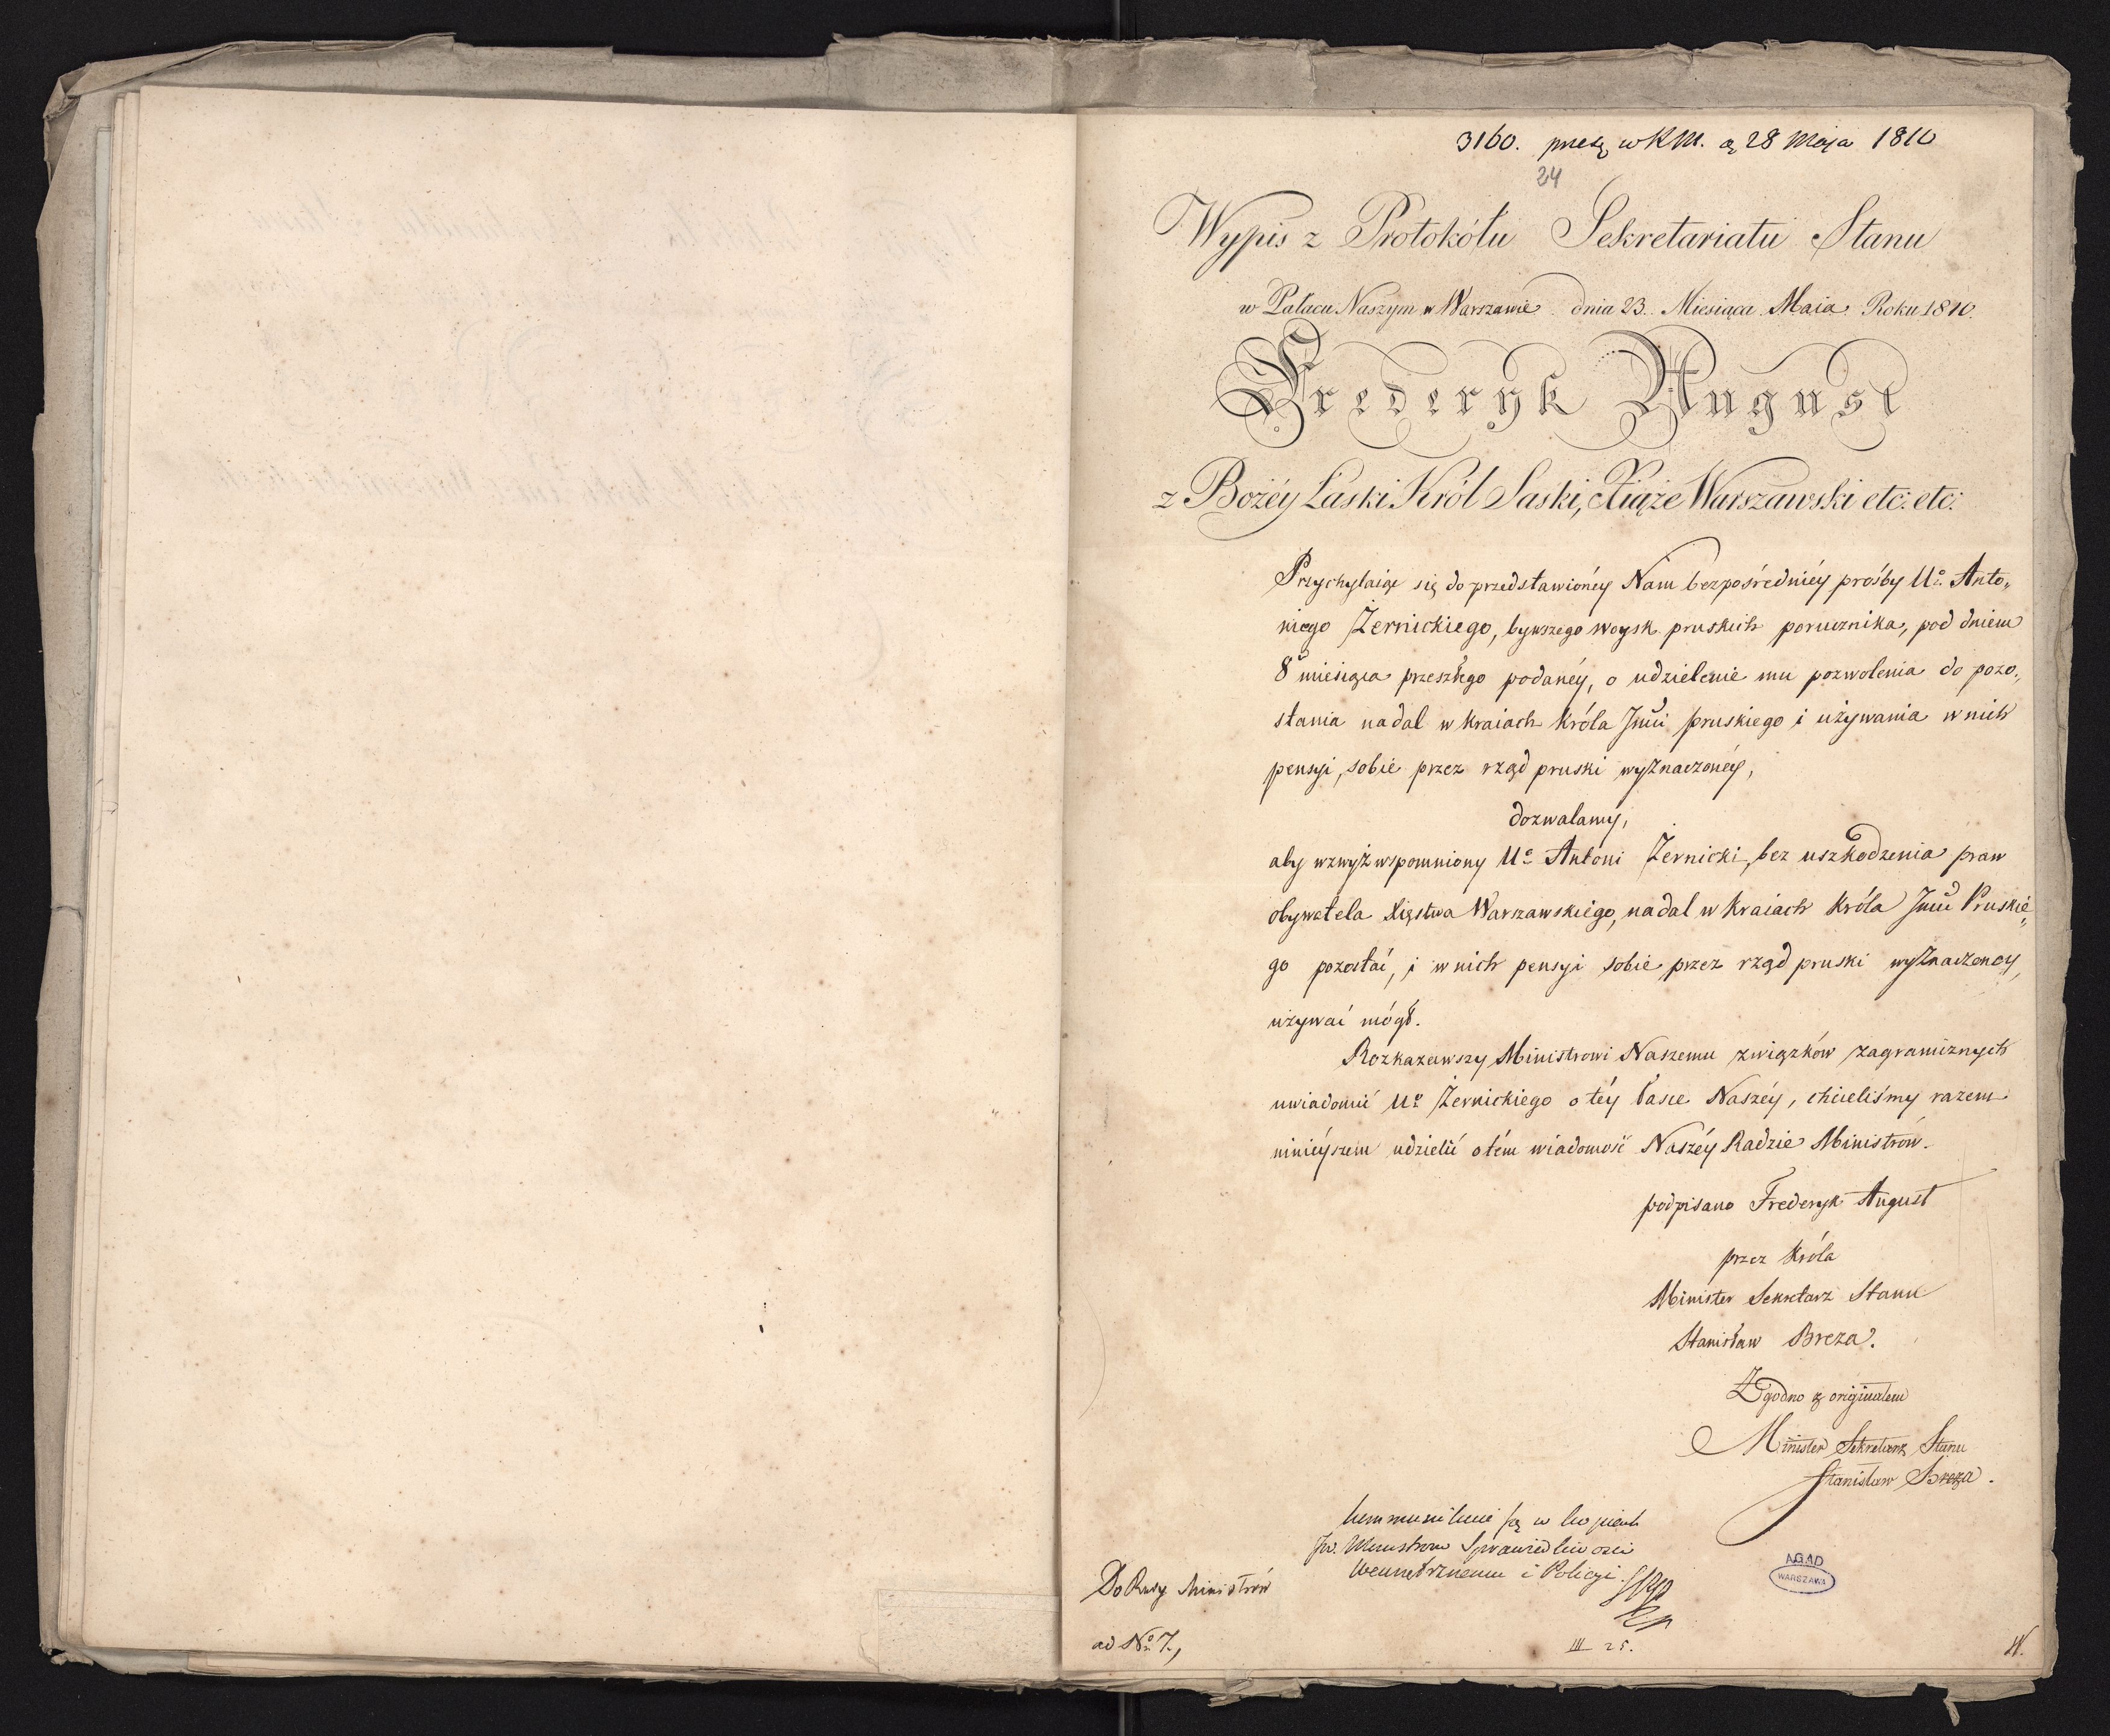 3160. w RM. 28 Maja 1810
24
Wypis z Protokółu Sekretariatu Stanu
w Pałacu Naszym w Warszawie dnia 23. Miesiąca Maia Roku 1810.
Frederyk August
z Bożéy Łaski Król Saski, Xiąże Warszawski etc: etc:
Przychylaiąc się do przedstawionéy Nam bezpośredniéy prośby Uo. Anto„
niego Żernickiego, bywszego woysk pruskich porucznika, pod dniem
8 miesiąca przeszłego podanéy, o udzielenie mu pozwolenia do pozo„
stania nadal w kraiach Króla Jmci pruskiego i używania w nich
pensyi, sobie przez rząd pruski wyznaczonéy,
dozwalamy,
aby wzwyż wspomniony Uo. Antoni Żernicki, bez uszkodzenia praw
obywatela Xięstwa Warszawskiego, nadal w kraiach Króla Jmci Pruskie„
go pozostać, i w nich pensyi sobie przez rząd pruski wyznaczoney,
używać mógł.
Rozkazawszy Ministrowi Naszemu związków zagranicznych
uwiadomić Uo. Żernickiego o téy łasce Naszéy, chcieliśmy razem
ninieyszem udzielić o tém wiadomość Naszéy Radzie Ministrów.
podpisano Frederyk August
przez Króla
Minister Sekretarz Stanu
Stanisław Breza.
Zgodno z originałem
Minister Sekretarz Stanu
Stanisław Breza.
w kopiach
JW. Ministrom Sprawiedliwości
Wewnętrznemu i Policyi.
Do Rady Ministrów
ad No. 7.,
III 25.
A.G.A.D
WARSZAWA